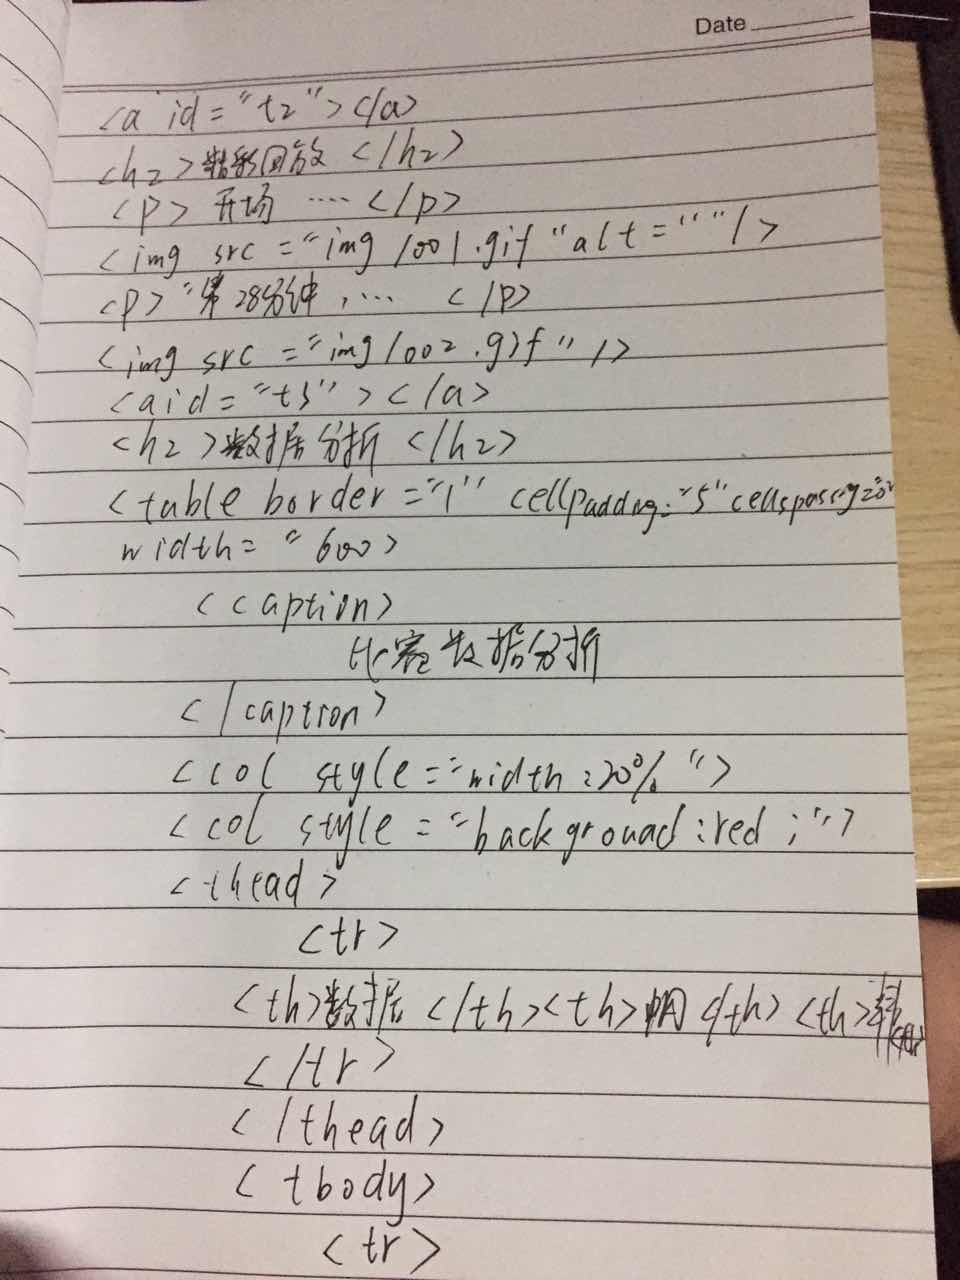 Date
<a id="t2"></a>
<h2>精彩回放</h2>
<p>开场 ....</p>
<img src="img/001.gif"alt=""/>
<p>第28分钟,... </p>
<img src="img/002.gif" />
<aid="t3"></a>
<h2>数据分析</h2>
<table border="1" cellpadding="5"
width="600>
<caption>
比赛数据分析
</caption>
<col style="width:20%">
<col style="background:red;">
<thead>
<tr>
<th>数据</th><th></th><th>
</tr>
</thead>
<tbody>
<tr>